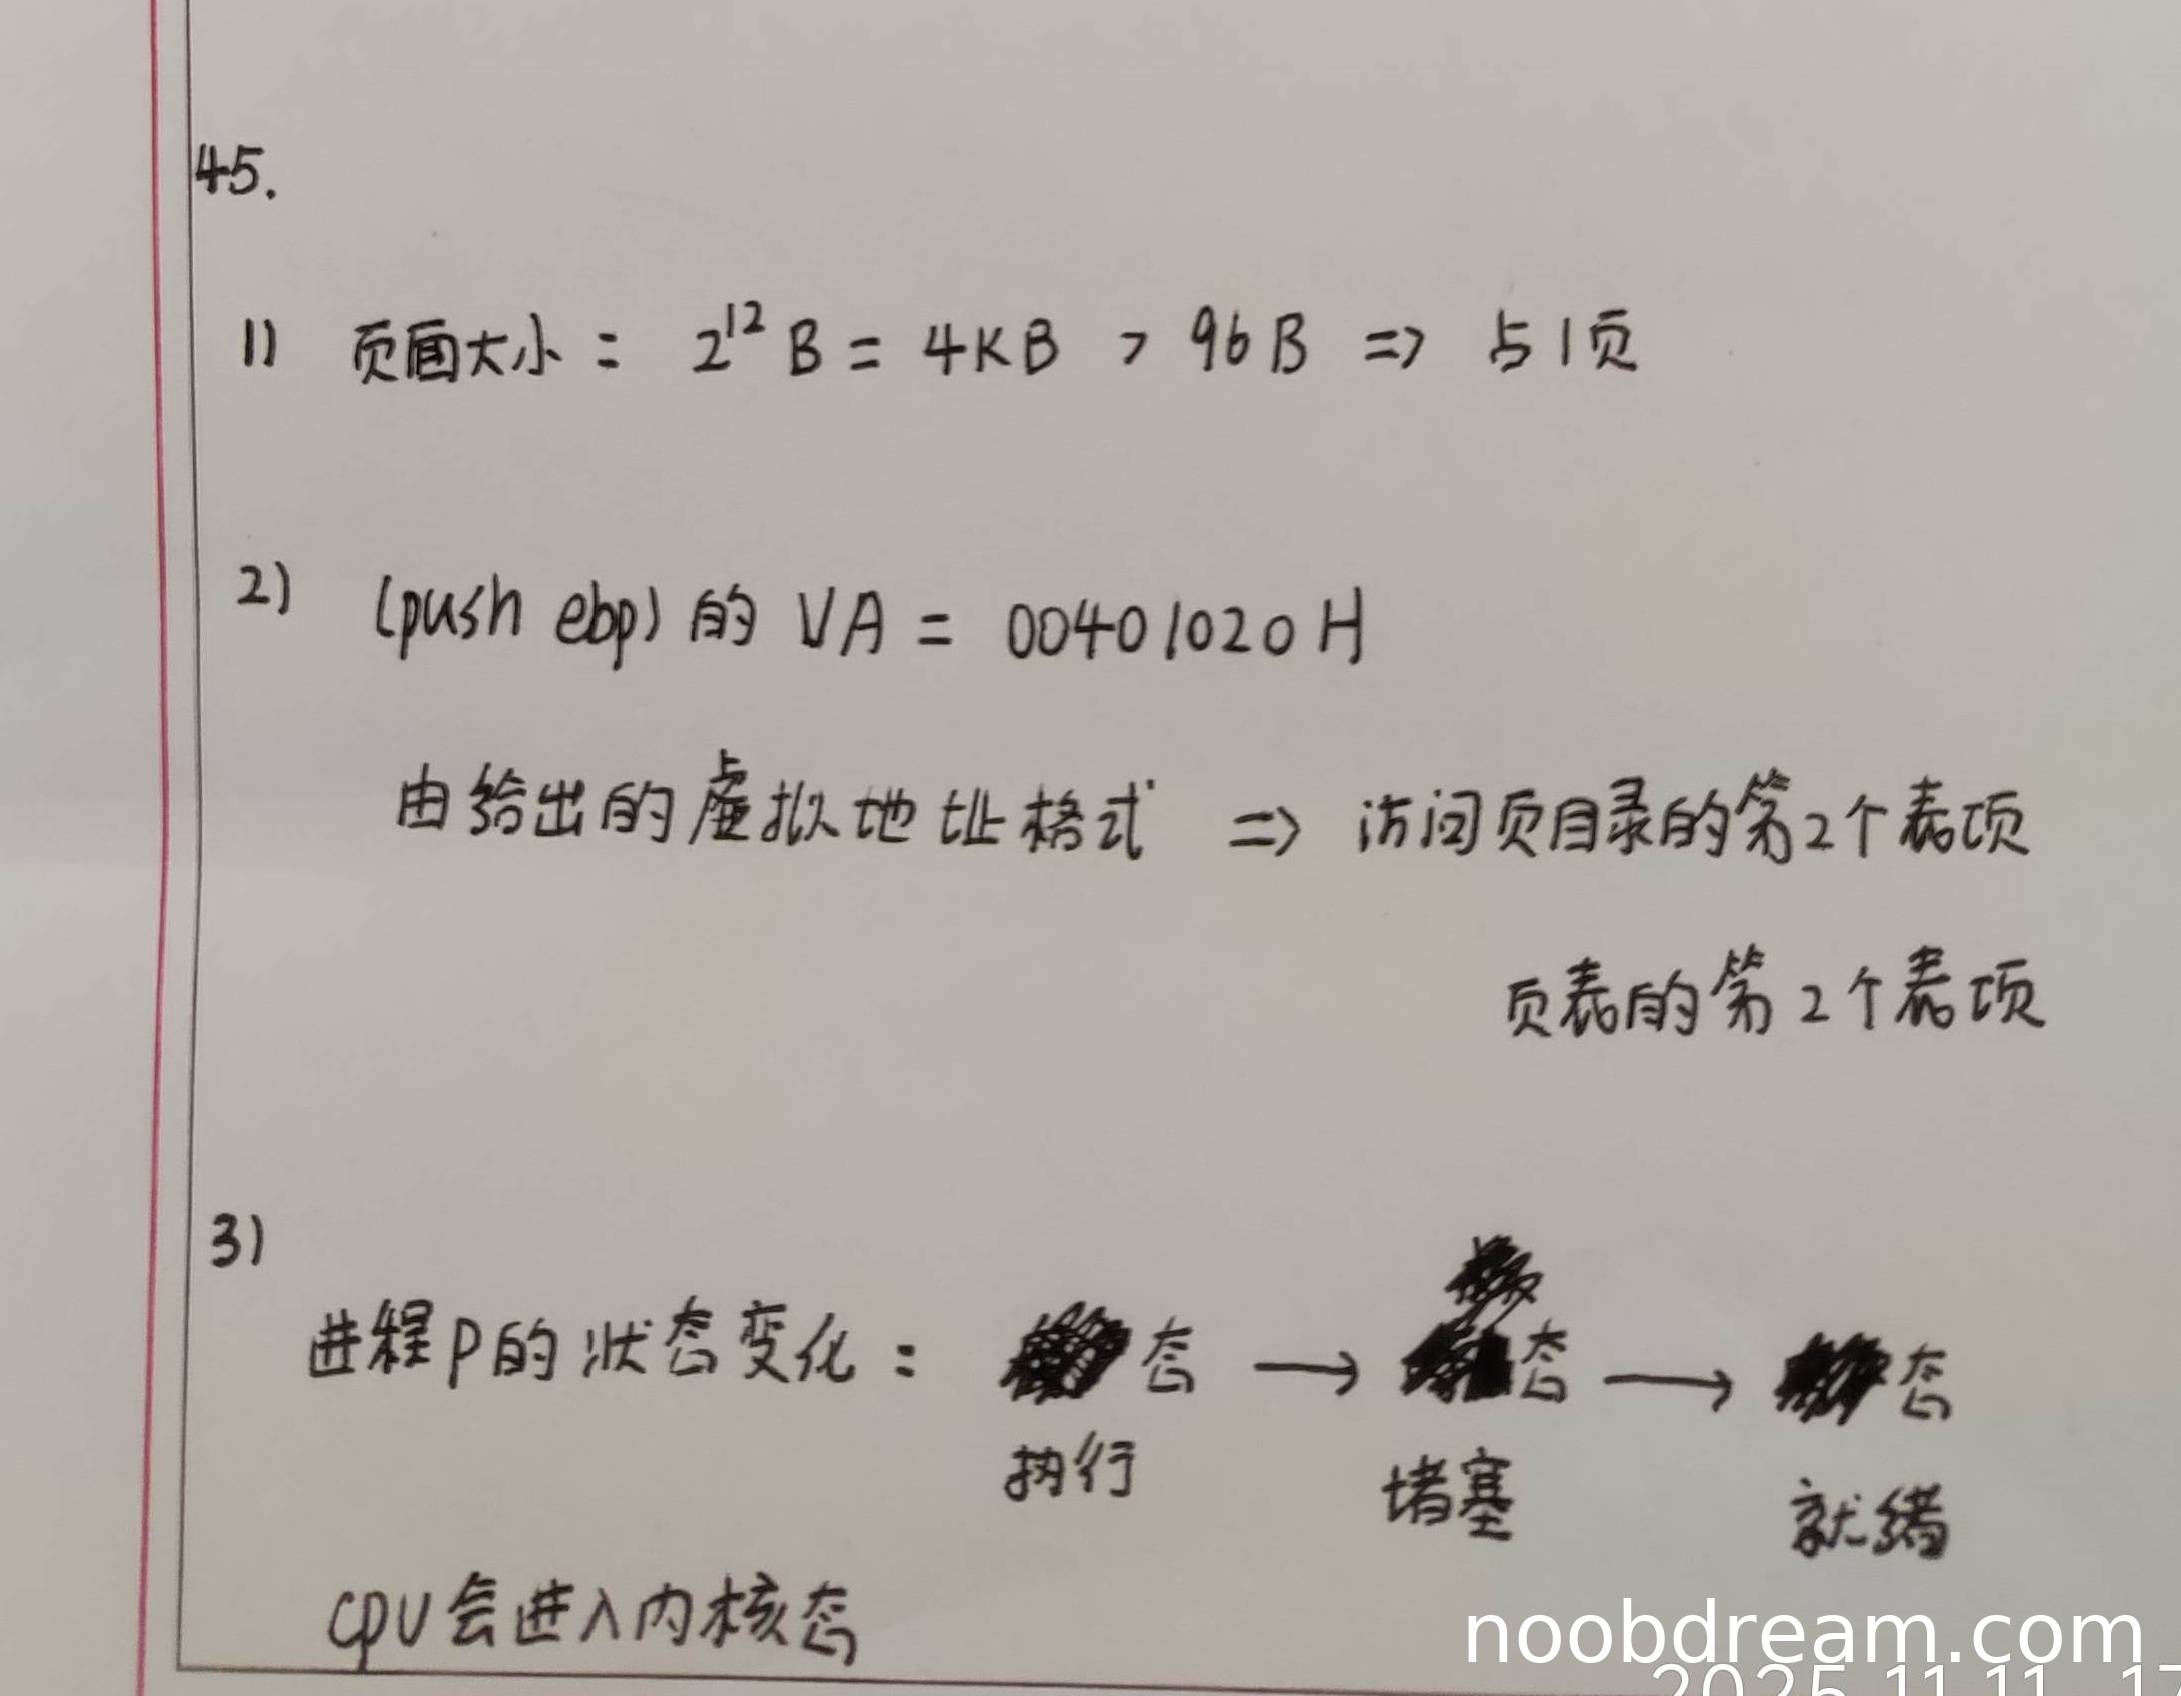 45.
1) 页面大小： 2^12 B = 4KB > 96B => 占1页
2) (push ebp) 的 VA = 00401020H
由给出的虚拟地址格式 => 访问页目录的第2个表项
页表的第2个表项
3)
进程P的状态变化： 态 → 态 → 态
执行 堵塞 就绪
CPU会进入内核态
noobdream.com